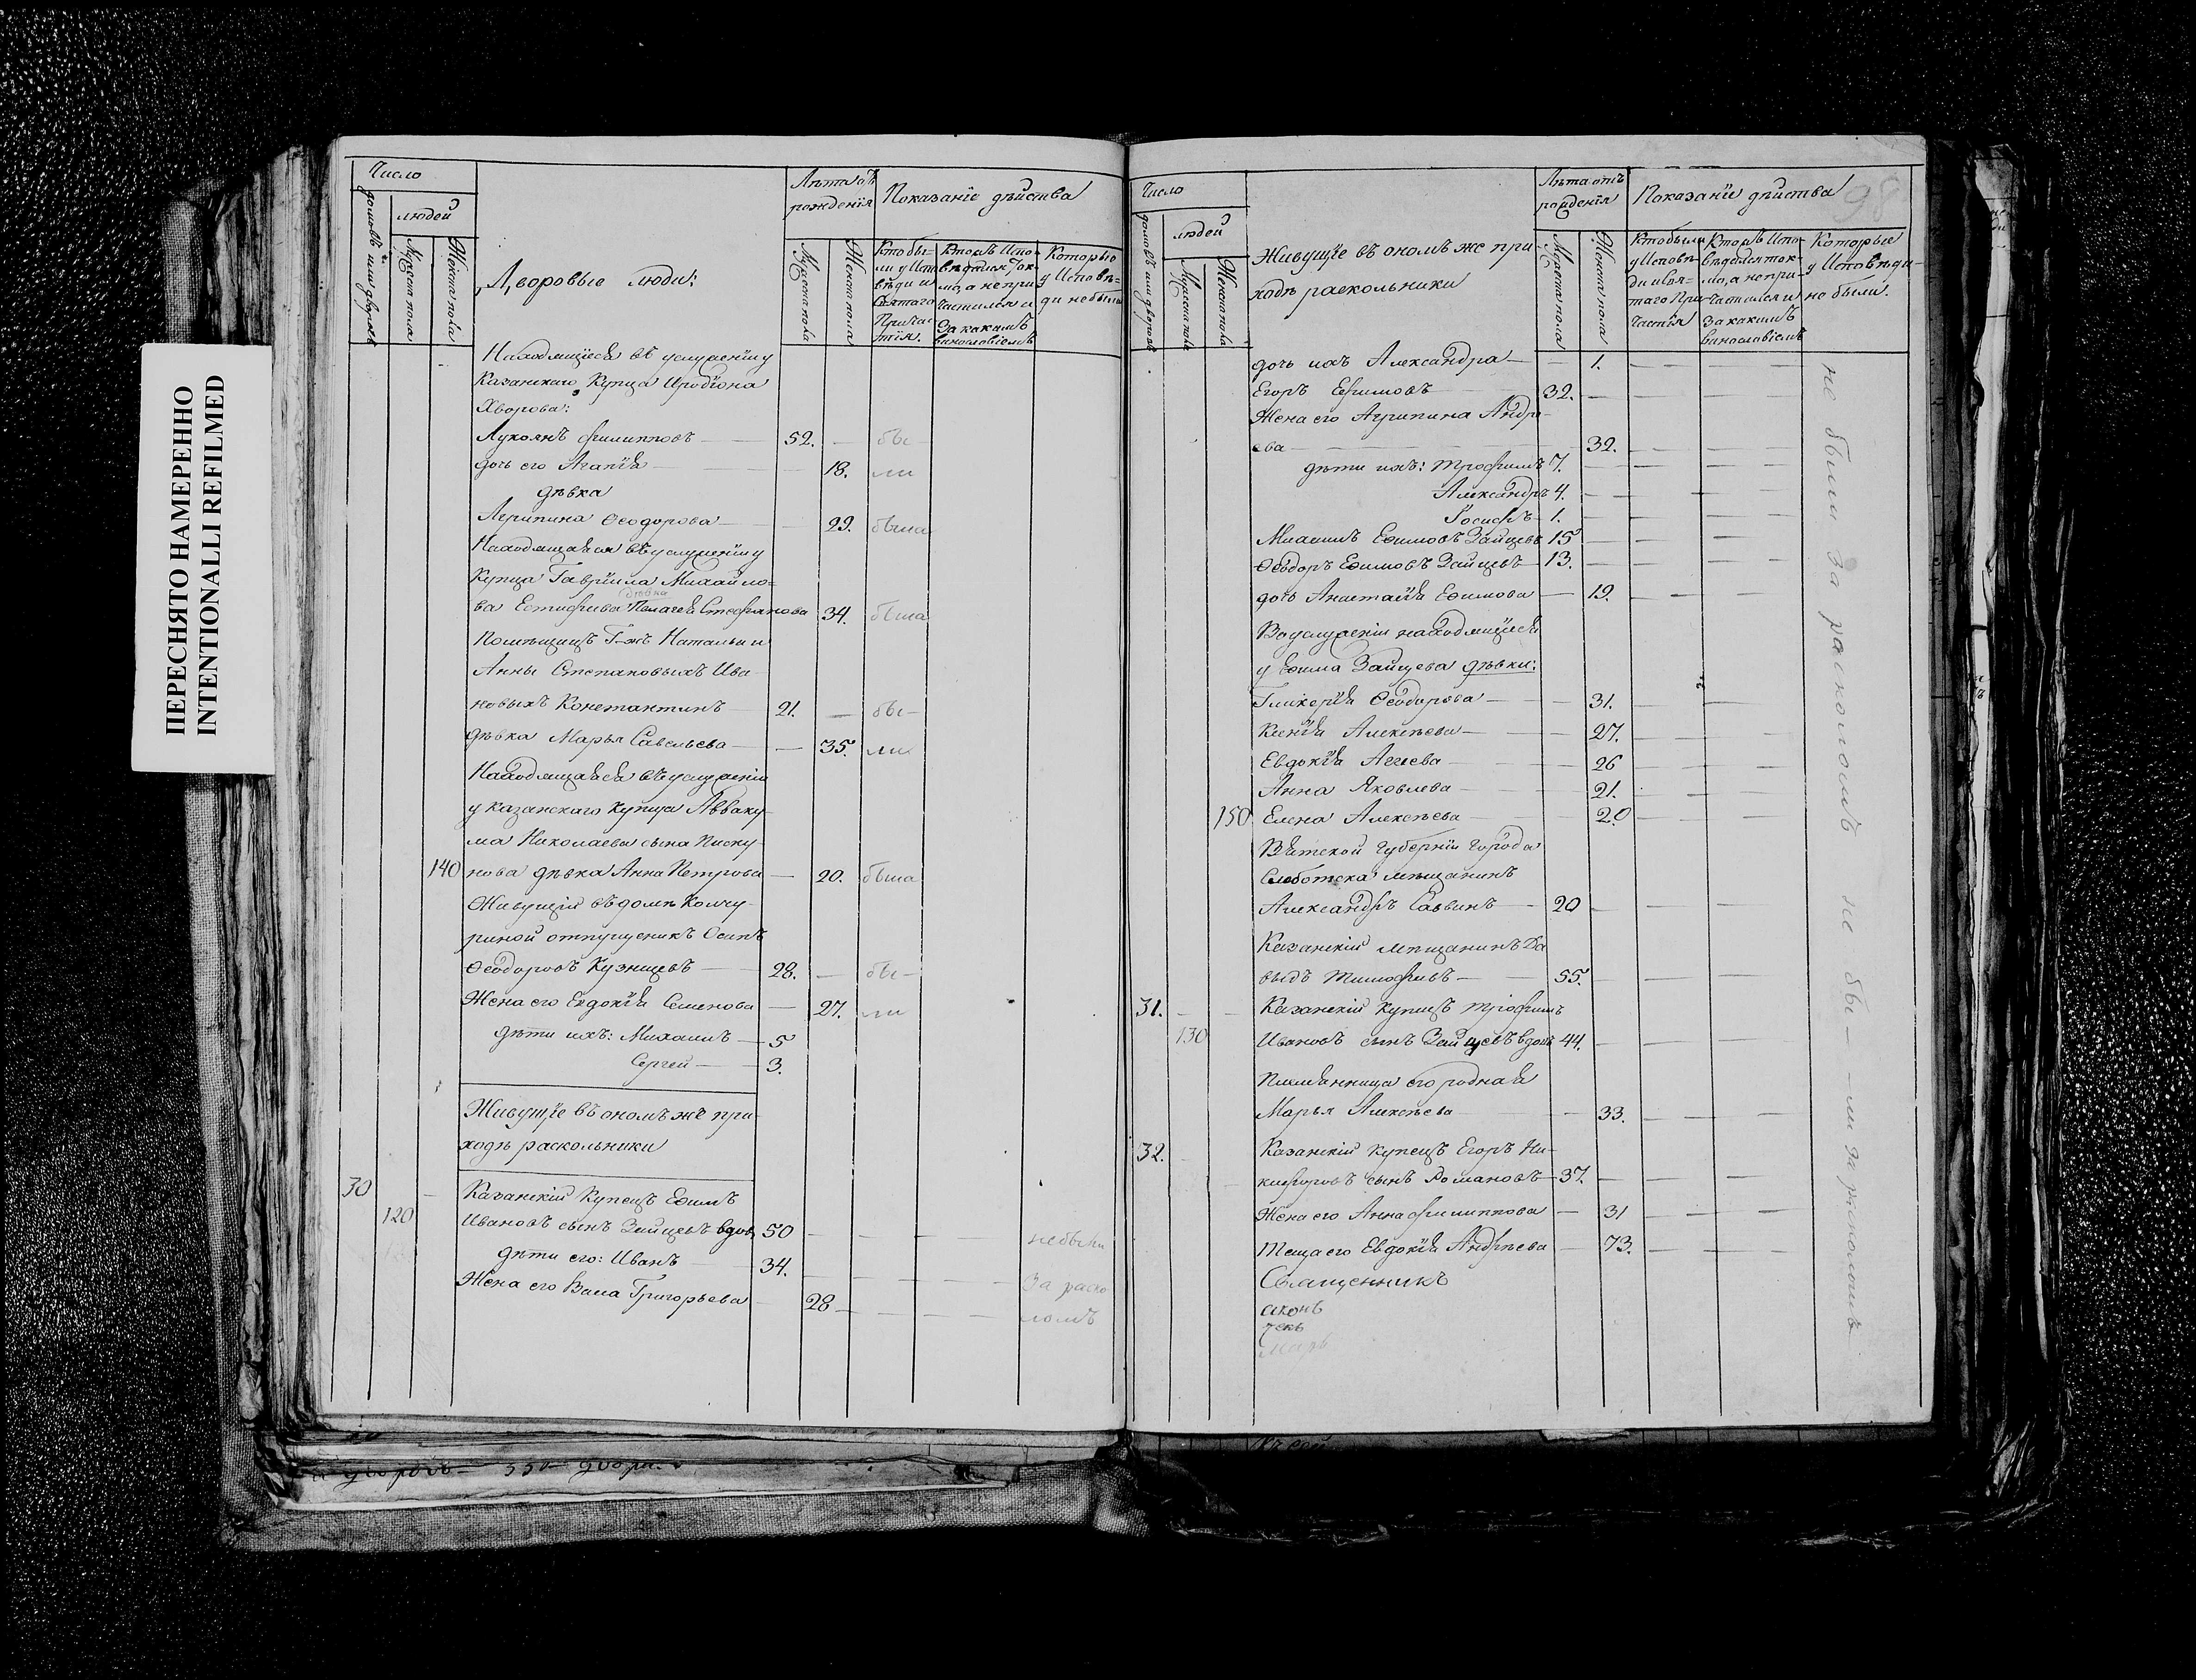 ПЕРЕСНЯТО НАМЕРЕННО
INTENTIONALLI REFILMED
Число
домовъ или дворовъ
людей
Мужеска пола
Женска пола
Дворовые люди:
Лѣта отъ рожденїя
Мужеска пола
Женска пола
Показанїе дѣйства
Кто бы-
ли у Испо
вѣди и
Святаго
Прича-
тїя.
Кто исповѣдался ток-
мо, а не при
частился и
за какимъ
винословіемъ
Которые
у Исповѣ-
ди не были
Находящїеся въ услуженїи у
Казанскаго Купца Иродїона
Хворова:
Лукоянъ Филипповъ — 52. — бы-
дочь его Агапїя — 18. ли
дѣвка
Агрипина Ѳеодорова — 29. была
Находящаяся въ услуженїи у
Купца Гаврїила Михайло-
ва Естифѣева Пелагея Стефанова 34. была
Помѣщицъ Г-жъ Натальи и
Анны Степановыхъ Ива
новыхъ Константинъ 21. — бы-
дѣвка Марья Савельева — 35. ли
Находящаяся въ услуженїи
у казанскаго купца Авваку
ма Николаева сына Писку-
140 нова дѣвка Анна Петрова — 20. была
Живущїй въ домѣ Комчу-
риной отпущеникъ Осипъ
Ѳеодоровъ Кузнецовъ — 28. — бы-
Жена его Евдокїя Семенова — 27. ли
дѣти ихъ: Михаилъ — 5
Сергей — 3.
Живущїе въ ономъ же при-
ходѣ раскольники
30 Казанскїй Купецъ Ефимъ
120 Ивановъ сынъ Зайцевъ вдов 50 — — — небыли
дѣти его: Иванъ 34. — — — —
Жена его Васа Григорьева 28 — — — —
За раско
ломъ
98
Число
домовъ или дворовъ
людей
Мужеска пола
Женска пола
Живущїе въ ономъ же при
ходѣ раскольники
Лѣта отъ
рожденїя
Мужеска пола
Женска пола
Показанїе дѣйства
Кто были
у Исповѣ-
ди и Свя-
таго При-
частїя
Кто исповѣдался ток-
мо, а не при-
частился и
за какимъ
винословіемъ
Которые
у Исповѣди
не были.
дочь ихъ Александра — — 1. — — —
Егоръ Ефимовъ 32. — — — —
Жена его Агрипина Андре-
ева — 32. — — —
дѣти ихъ: Трофимъ 7. — — — —
Александръ 4. — — — —
Іосифъ — 1. — — — —
Михаилъ Ефимовъ Зайцевъ 15 — — — —
Ѳеодоръ Ефимовъ Зайцевъ — 13. — — — —
дочь Анастасїя Ефимова — 19. — — —
Во услуженїи находящїеся
у Ефима Зайцева дѣвки:
Гликерїя Ѳеодорова — — 31. — —
Ксенїя Алексѣева — — 27. — — —
Евдокїя Агѣева — — 26 — — —
Анна Яковлева — — 21. — — —
150 Елена Алексѣева — — 20 — — —
Вятской губернїи города
Слоботска мѣщанинъ
Александръ Саввинъ — 20 — — — —
Казанскїй мѣщанинъ Да
выдъ Тимофѣевъ — 55. — — — —
31. — — Казанскїй Купецъ Трофимъ
130 Ивановъ сынъ Зайцевъ вдовъ 44. — — — —
Племянница его родная
Марья Алексѣева — 33. — — —
32. Казанскїй купецъ Егоръ Ни-
кифоровъ сынъ Романовъ — 37. — — — —
Жена его Анна Филиппова — 31 — — —
Теща его Евдокїя Андрѣева — 73. — — —
Священникъ
не были за расколомъ не бы-
-ли за расколомъ